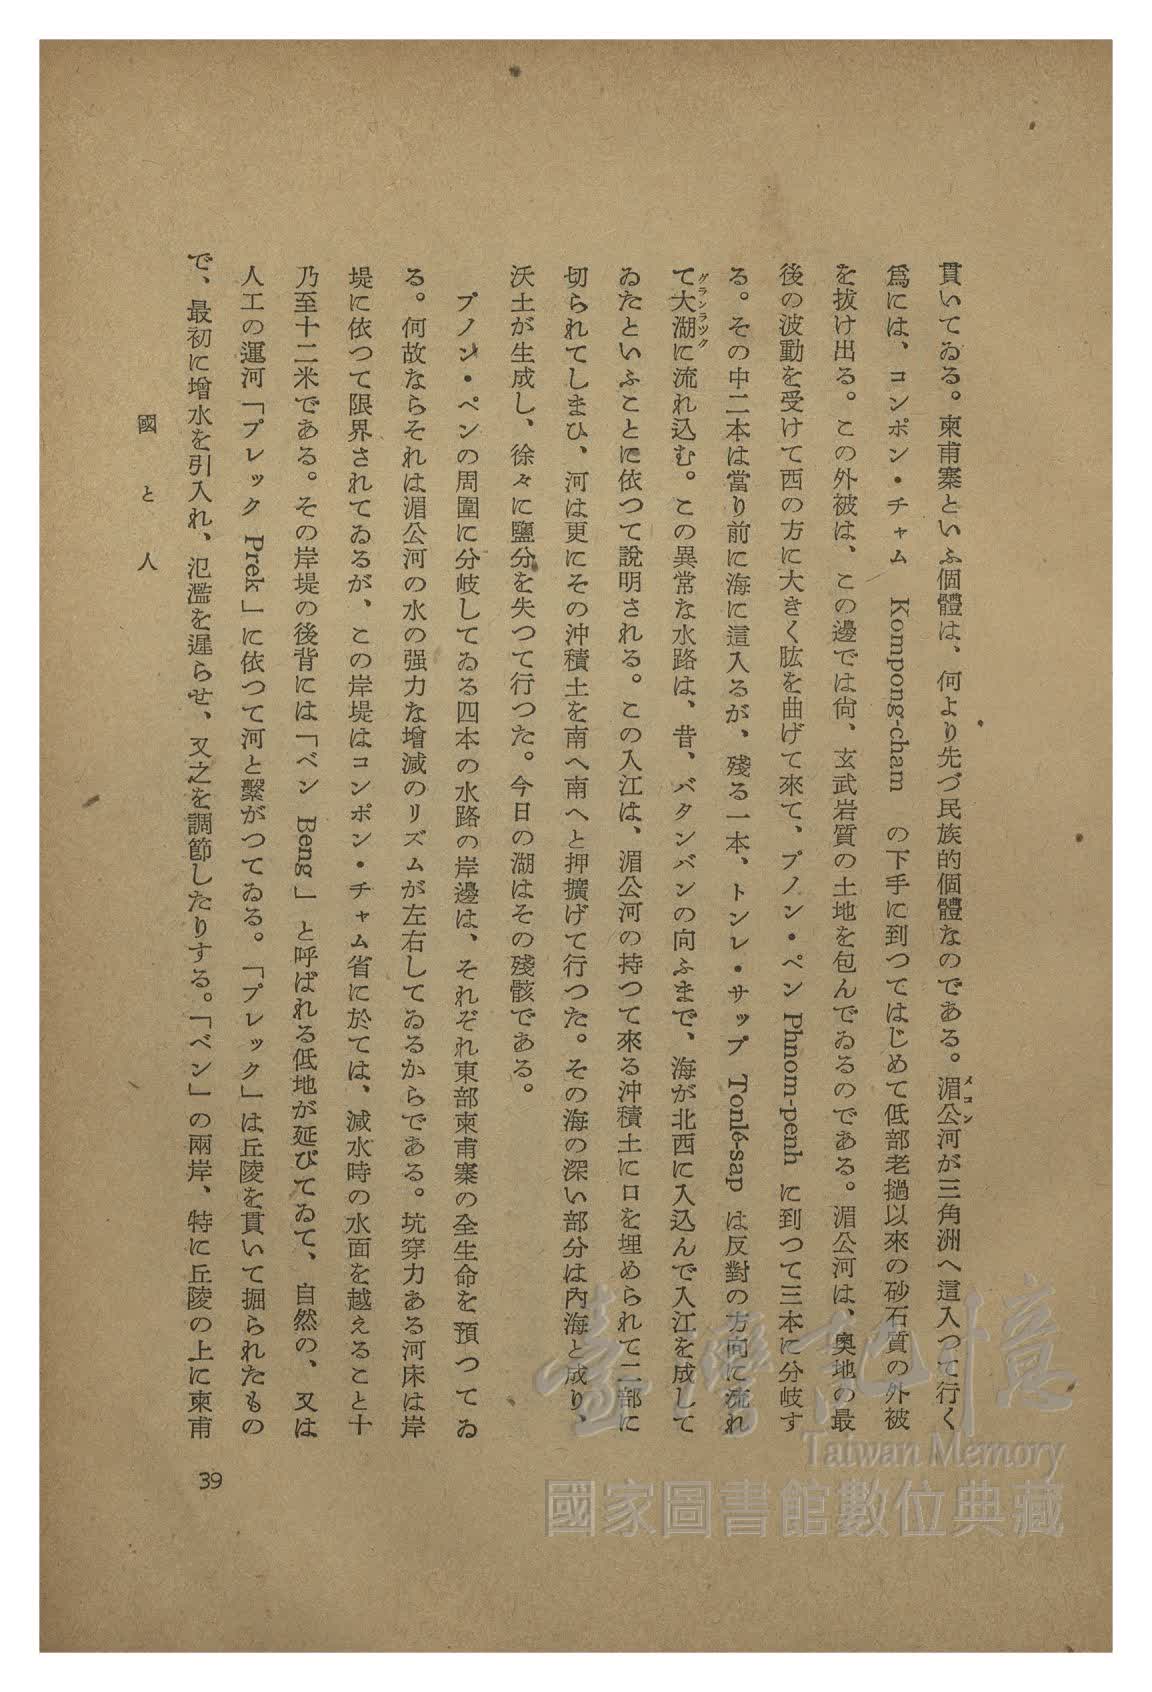 貫いてゐる。柬甫寨といふ個體は、何より先づ民族的個體なのである。湄公河が三角洲へ這入つて行く
メコン
爲には、コンポン・チャム Kompong-cham の下手に到つてはじめて低部老撾以來の砂石質の外被
を抜け出る。この外被は、この邊では尙、玄武岩質の土地を包んでゐるのである。湄公河は、奧地の最
後の波動を受けて西の方に大きく肱を曲げて來て、プノン・ペン Phnom-penh に到つて三本に分岐す
る。その中二本は當り前に海に這入るが、殘る一本、トンレ・サップ Tonlé-sap は反對の方向に流れ
て大湖に流れ込む。この異常な水路は、昔、バタンバンの向ふまで、海が北西に入込んで入江を成して
グランラック
ゐたといふことに依つて說明される。この入江は、湄公河の持つて來る沖積土に口を埋められて二部に
切られてしまひ、河は更にその沖積土を南へ南へと押擴げて行つた。その海の深い部分は內海と成り、
沃土が生成し、徐々に鹽分を失つて行つた。今日の湖はその殘骸である。
プノン・ペンの周圍に分岐してゐる四本の水路の岸邊は、それぞれ東部柬甫寨の全生命を預つてゐ
る。何故ならそれは湄公河の水の强力な增減のリズムが左右してゐるからである。坑穿力ある河床は岸
堤に依つて限界されてゐるが、この岸堤はコンポン・チャム省に於ては、減水時の水面を越えること十
乃至十二米である。その岸堤の後背には「ベン Beng」と呼ばれる低地が延びてゐて、自然の、又は
人工の運河「プレック Prek」に依つて河と繫がつてゐる。「プレック」は丘陵を貫いて掘られたもの
で、最初に增水を引入れ、氾濫を遲らせ、又之を調節したりする。「ベン」の兩岸、特に丘陵の上に柬甫
國と人
39
臺灣記憶
Taiwan Memory
國家圖書館數位典藏